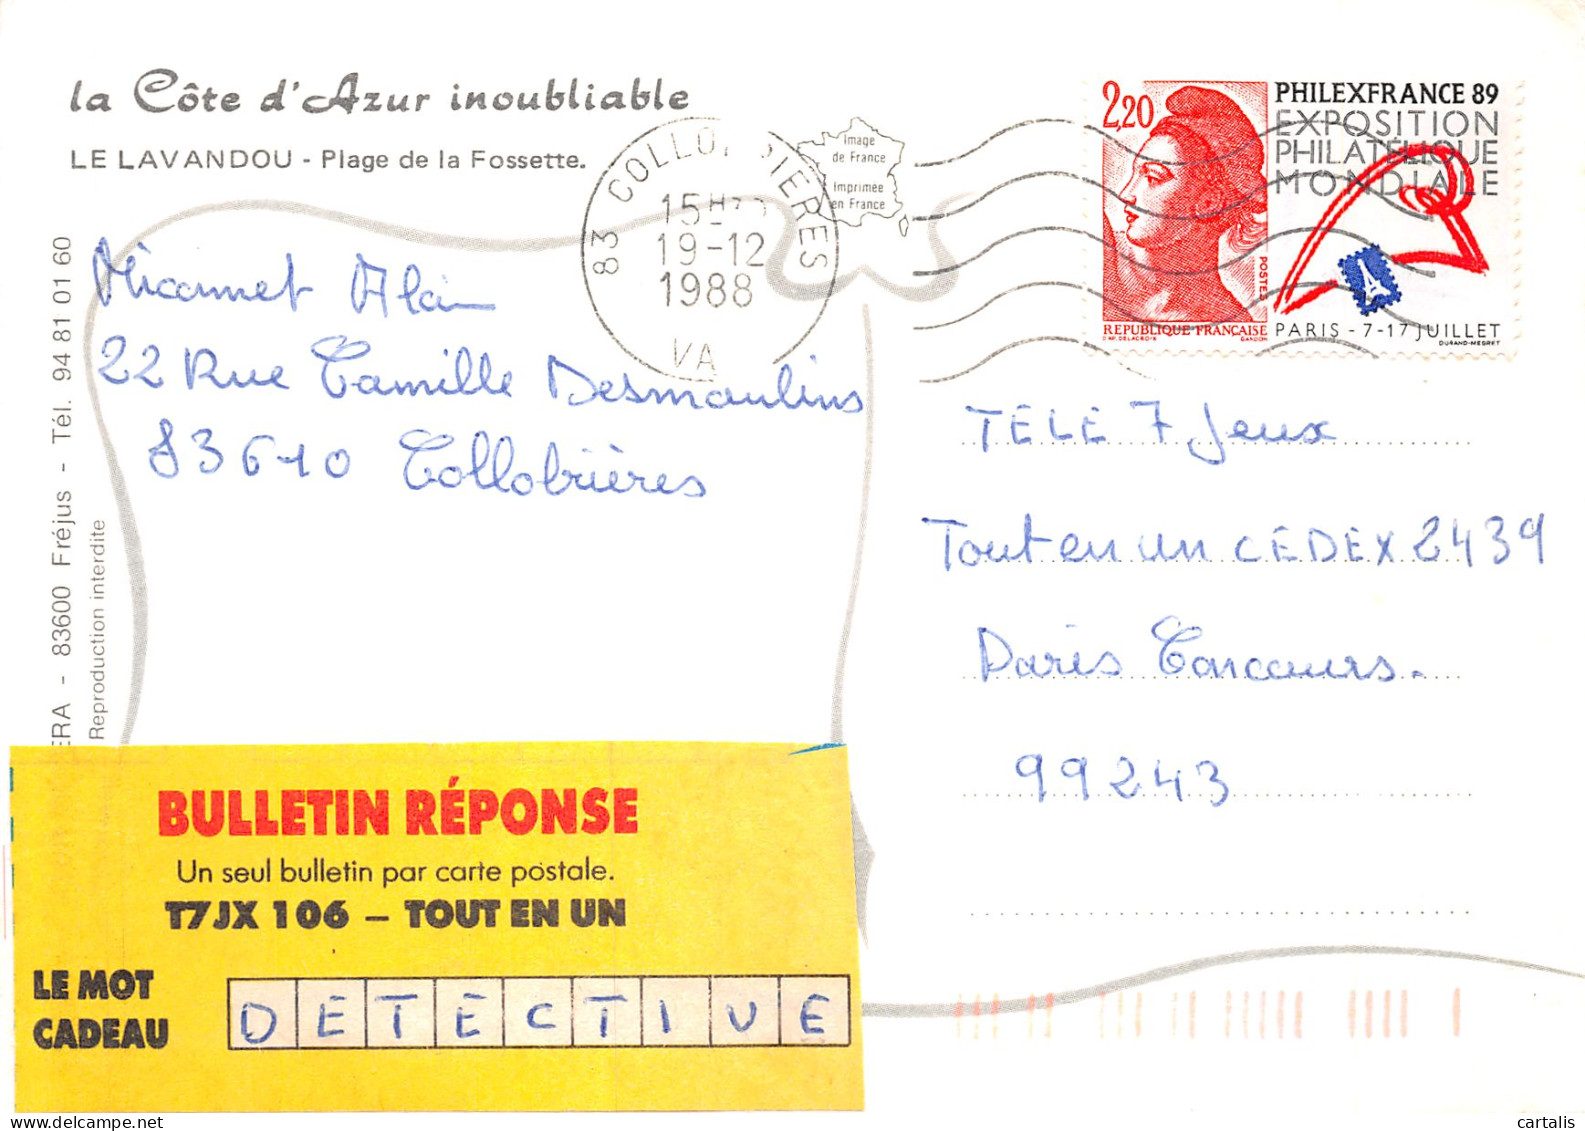 la Côte d'Azur inoubliable
LE LAVANDOU - Plage de la Fossette.
Image
de France
Imprimée
en France
83 COLLOBRIERES
15H30
19-12
1988
VAR
2,20
POSTES
REPUBLIQUE FRANÇAISE
D'AP. DELACROIX GANDON
PHILEXFRANCE 89
EXPOSITION
PHILATÉLIQUE
MONDIALE
PARIS - 7-17 JUILLET
DURAND-MEGRET
Micamet Alain
22 Rue Camille Desmoulins
83610 Collobrières
ERA - 83600 Fréjus - Tél. 94 81 01 60
Reproduction interdite
TELE 7 Jeux
Tout en un CEDEX 2439
Paris Concours.
99243
BULLETIN RÉPONSE
Un seul bulletin par carte postale.
T7JX 106 – TOUT EN UN
LE MOT
CADEAU
DETECTIVE
cartalis